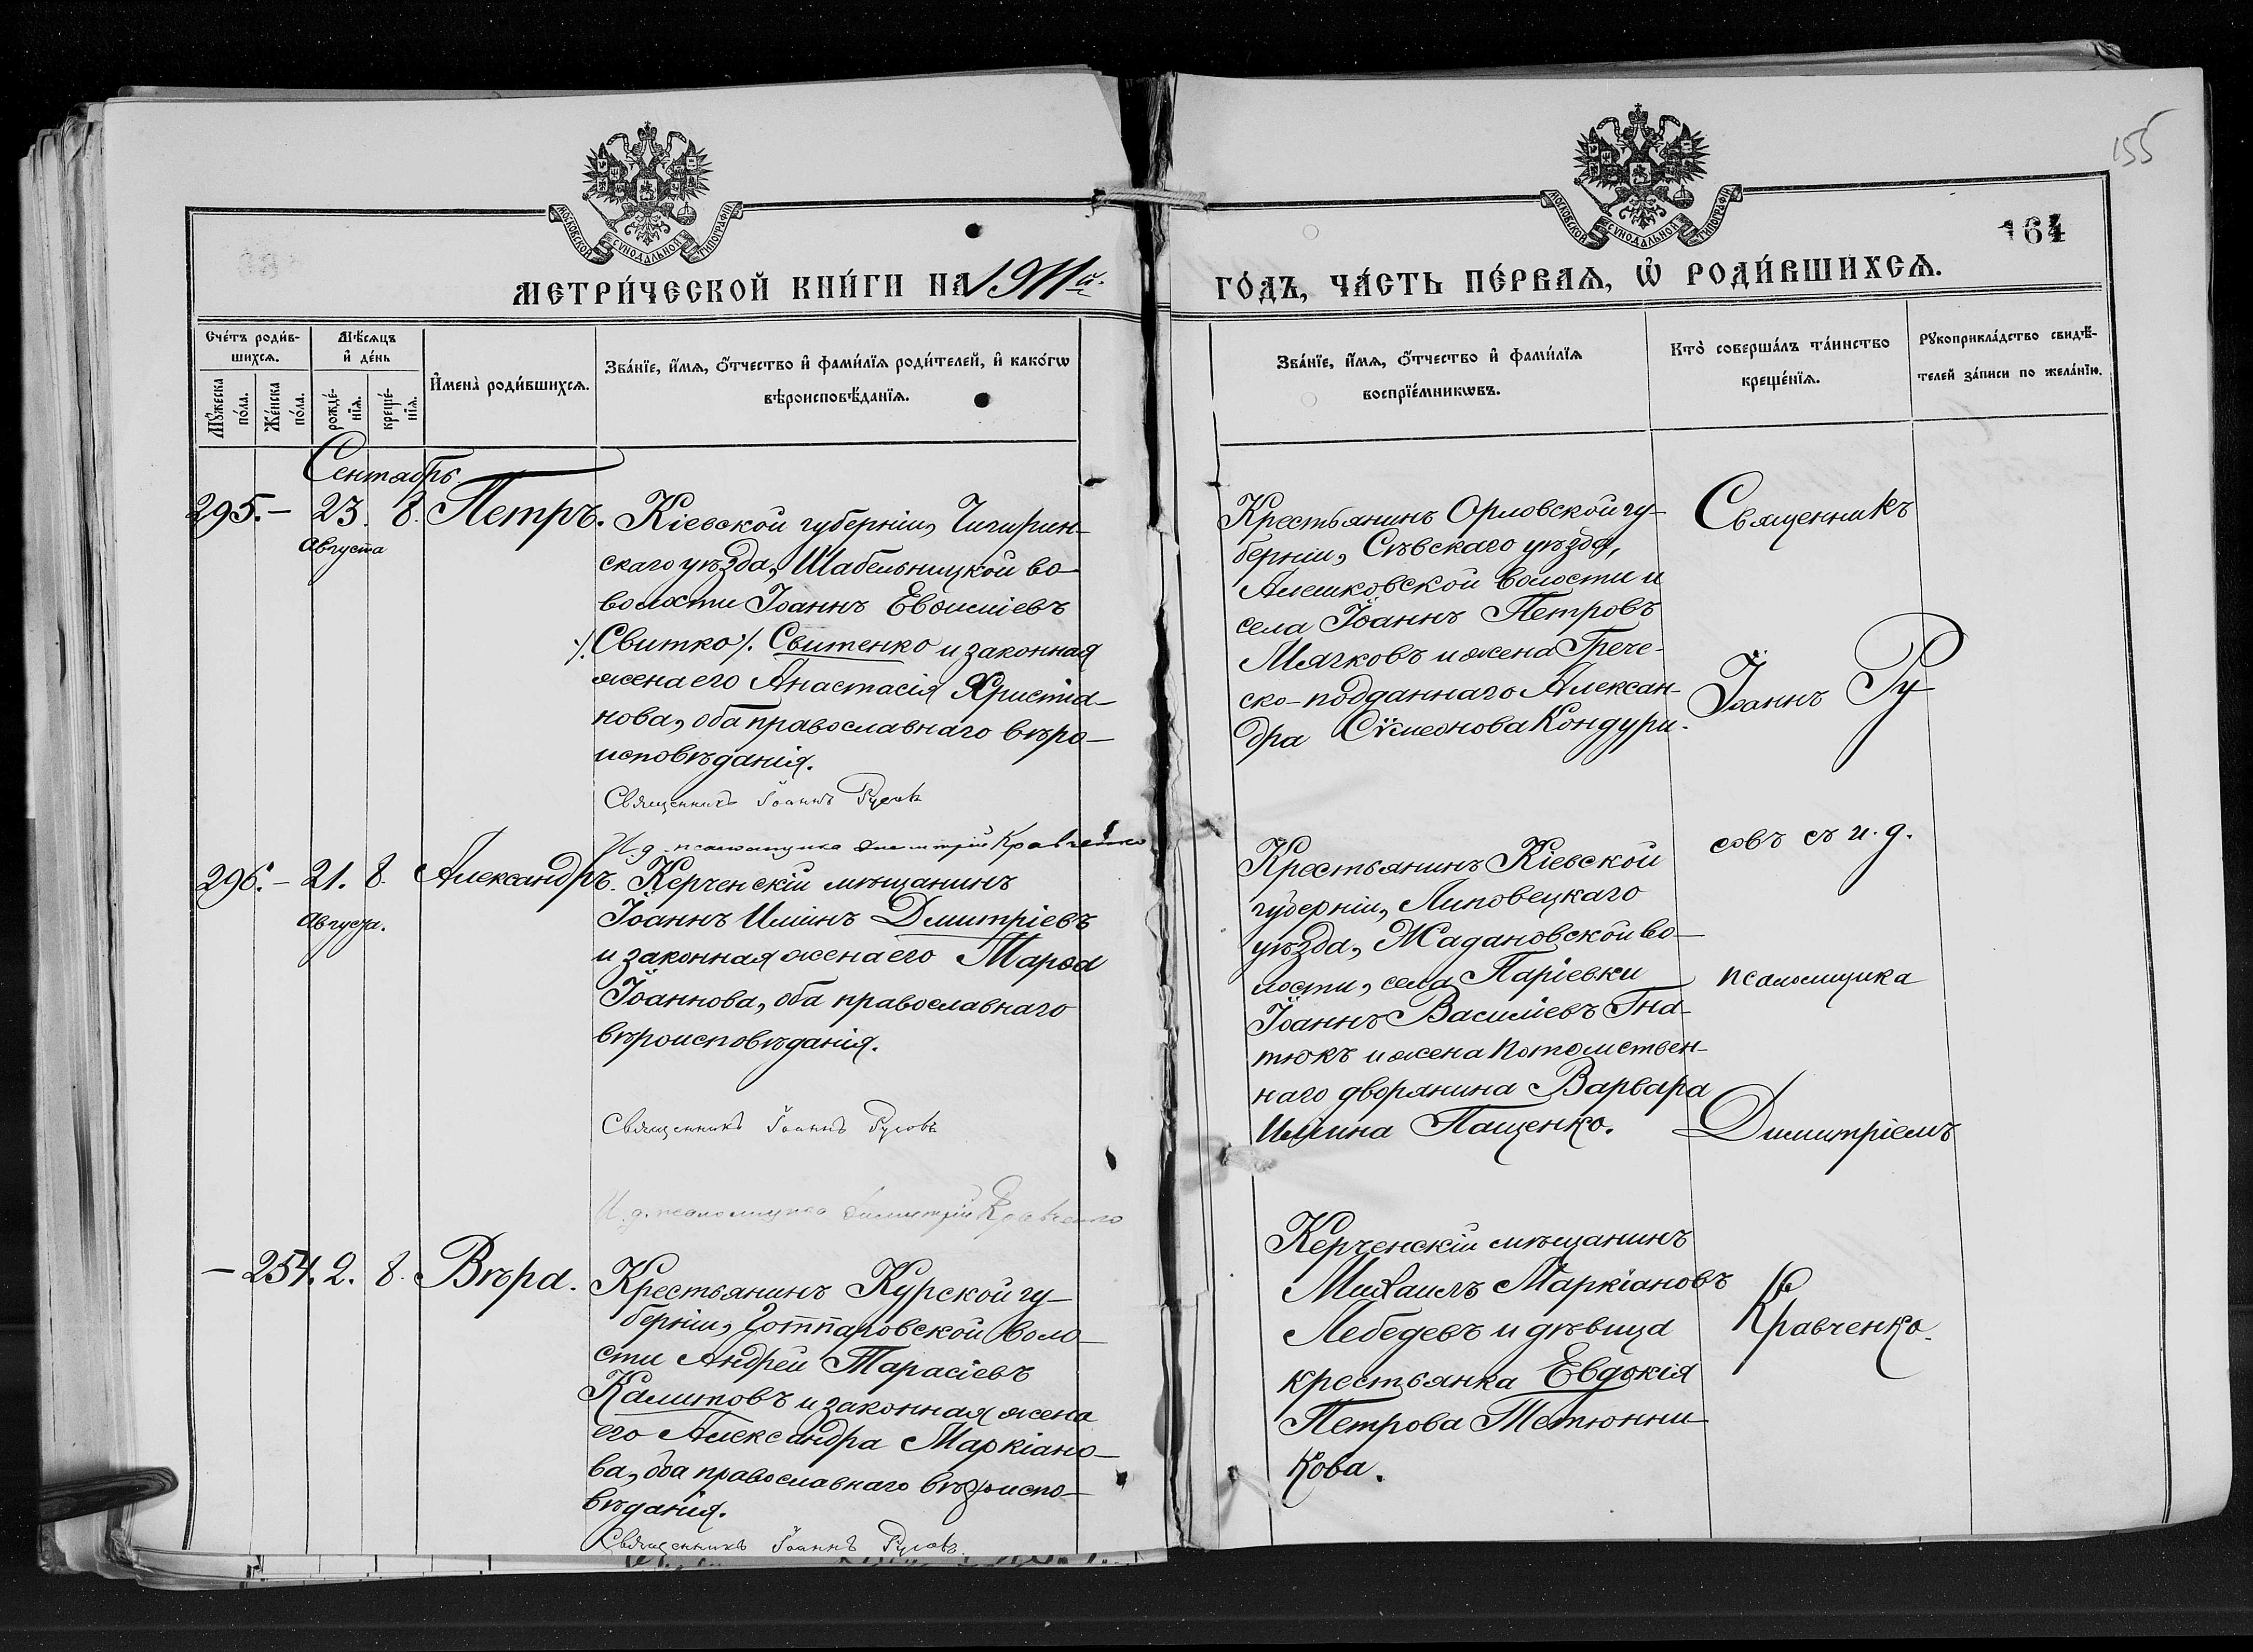 155
164
МОСКОВСКОЙ СѴНОДАЛЬНОЙ ТИПОГРАФІИ
МОСКОВСКОЙ СѴНОДАЛЬНОЙ ТИПОГРАФІИ
МЕТРИ́ЧЕСКОЙ КНИ́ГИ НА 1911й.
ГО́ДЪ, ЧА́СТЬ ПЕ́РВАѦ, Ѡ҆ РОДИ́ВШИХСѦ.
Сче́тъ роди́в-
шихсѧ.
Мꙋ́жеска
по́ла.
Же́нска
по́ла.
Мѣ́сѧцъ
и҆ де́нь
рожде́-
нїѧ.
креще́-
нїѧ.
И҆мена̀ роди́вшихсѧ.
Зва́нїе, и҆́мѧ, ѻ҆́тчество и҆ фами́лїѧ роди́телей, и҆ како́гѡ
вѣроисповѣ́данїѧ.
Зва́нїе, и҆́мѧ, ѻ҆́тчество и҆ фами́лїѧ
воспрїе́мникѡвъ.
Кто̀ соверша́лъ та́инство
креще́нїѧ.
Рꙋкоприкла́дство свидѣ́-
телей за́писи по жела́нїю.
Сентябрь.
295. – 23. 8. Петръ.
Августа
Кіевской губерніи, Чигирин-
скаго уѣзда, Шабельницкой во-
волости Іоаннъ Евѳиміевъ
/. Свитко /. Свитенко и законная
жена его Анастасія Христіа-
нова, оба православнаго вѣро-
исповѣданія.
Священникъ Іоаннъ Русовъ
И. д. псаломщика Димитрій Кравченко
Крестьянинъ Орловской гу-
берніи, Сѣвскаго уѣзда,
Алешковской волости и
села Іоаннъ Петровъ
Мягковъ и жена Грече-
ско-подданнаго Алексан-
дра Сѵмеонова Кондури.
Священникъ
Іоаннъ Ру-
296. – 21. 8. Александръ.
Августа.
Керченскій мѣщанинъ
Іоаннъ Иліинъ Дмитріевъ
и законная жена его Марѳа
Іоаннова, оба православнаго
вѣроисповѣданія.
Священникъ Іоаннъ Русовъ
И. д. псаломщика Димитрій Кравченко
Крестьянинъ Кіевской
губерніи, Липовецкаго
уѣзда, Жадановской во-
лости, села Паріевки
Іоаннъ Василіевъ Гна-
тюкъ и жена потомствен-
наго дворянина Варвара
Иліина Пащенко.
совъ съ и. д.
псаломщика
Димитріемъ
– 254. 2. 8. Вѣра.
Крестьянинъ Курской гу-
берніи, воло-
сти Андрей Тарасіевъ
Калитовъ и законная жена
его Александра Маркіано-
ва, оба православнаго вѣроиспо-
вѣданія.
Священникъ Іоаннъ Русовъ.
Керченскій мѣщанинъ
Михаилъ Маркіановъ
Лебедевъ и дѣвица
крестьянка Евдокія
Петрова Тетюнни-
кова.
Кравченко.